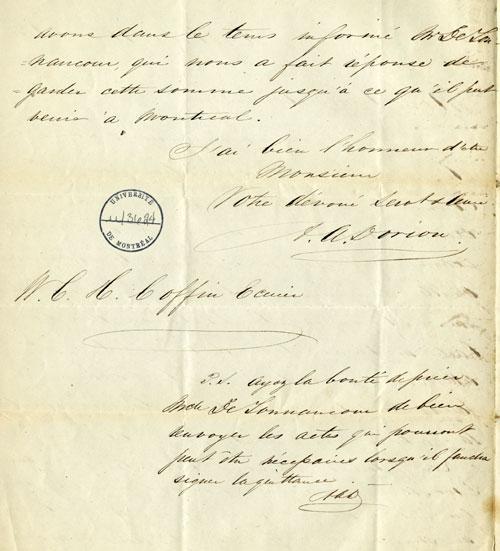 avons dans le tems informé Mr De Ton
=nancour, qui nous a fait réponse de
=garder cette somme jusqu'à ce qu'il put
venir à Montréal.
J'ai bien l'honneur d'être
Monsieur
Votre dévoué
A. A. Dorion
UNIVERSITÉ
DE MONTRÉAL
W. C. H. Coffin Ecuier
P.S. ayez la bonté de prier
Mde De Tonnancour de bien
envoyer les actes qui pourront
peut être nécessaires lorsqu'il faudra
signer la quittance
AAD